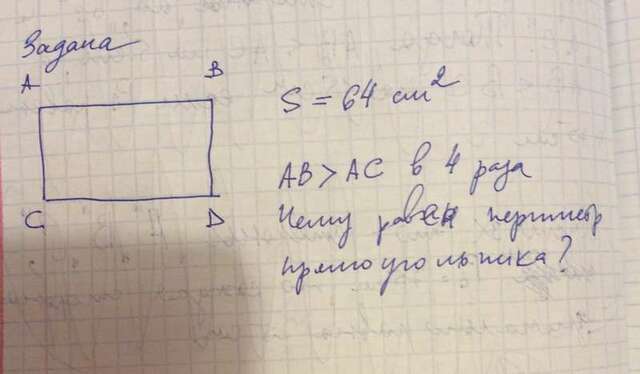 Задача
A B
C D
S = 64 см²
AB > AC в 4 раза
Чему равен периметр
прямоугольника?